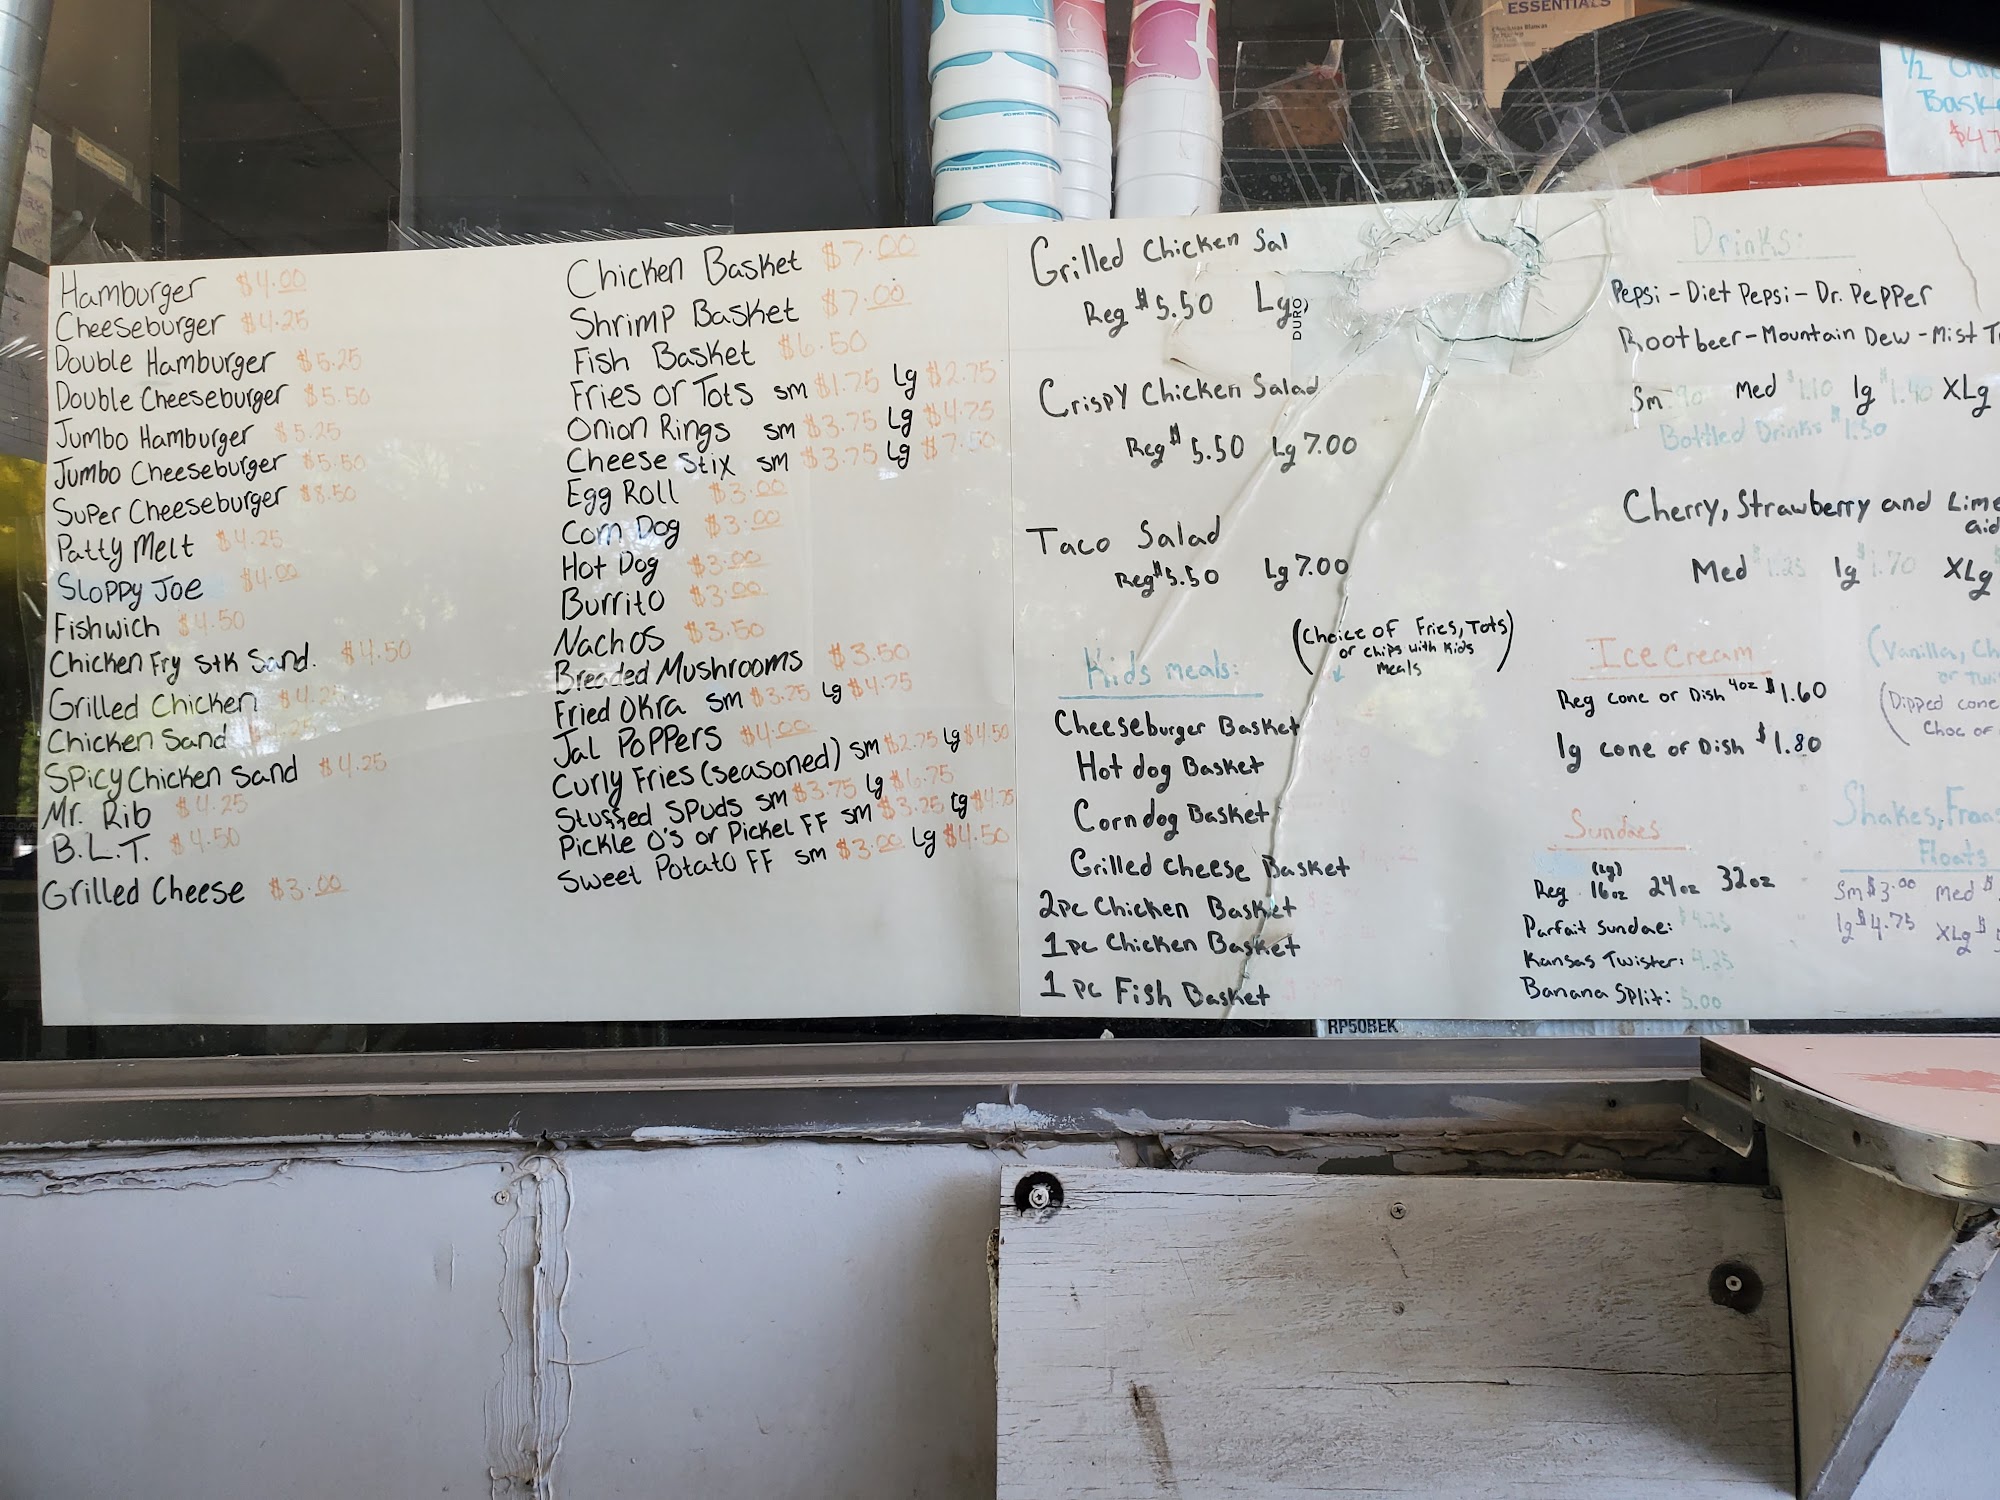 ESSENTIALS
1/2
Bask
Hamburger $4.00
Cheeseburger $4.25
Double Hamburger $5.25
Double Cheeseburger $5.50
Jumbo Hamburger $5.25
Jumbo Cheeseburger $5.50
Super Cheeseburger $8.50
Patty Melt $4.25
Sloppy Joe $4.00
Fishwich $4.50
Chicken Fry Stk Sand. $4.50
Grilled Chicken $4.25
Chicken Sand
Spicy Chicken Sand $4.25
Mr. Rib $4.25
B.L.T. $4.50
Grilled Cheese $3.00
Chicken Basket $7.00
Shrimp Basket $7.00
Fish Basket $6.50
Fries or Tots sm $1.75 Lg $2.75
Onion Rings sm $3.75 Lg $4.75
Cheese Stix sm $3.75 Lg $7.50
Egg Roll $3.00
Corn Dog $3.00
Hot Dog $3.00
Burrito $3.00
Nachos $3.50
Breaded Mushrooms $3.50
Fried Okra sm $3.75 Lg $4.75
Jal Poppers $4.00
Curly Fries (seasoned) sm $2.75 Lg $4.50
Stuffed Spuds sm $3.75 Lg $6.75
Pickle O's or Pickel FF sm $3.25 Lg $4.75
Sweet Potato FF sm $3.00 Lg $4.50
Grilled Chicken Sal
Reg $5.50 Lg
DURO
Crispy Chicken Salad
Reg $5.50 Lg 7.00
Taco Salad
Reg $5.50 Lg 7.00
(Choice of Fries, Tots)
or chips with Kids
meals
Kids meals:
Cheeseburger Basket
Hot dog Basket
Corndog Basket
Grilled Cheese Basket
2pc Chicken Basket
1pc Chicken Basket
1pc Fish Basket
Drinks:
Pepsi - Diet Pepsi - Dr. Pepper
Rootbeer - Mountain Dew - Mist T
Sm .90 Med $1.10 lg $1.40 XLg
Bottled Drinks $1.50
Cherry, Strawberry and Lime
aid
Med $1.25 lg $1.70 XLg
Ice Cream
(Vanilla, Ch
or Twi
Reg cone or Dish 4oz $1.60
(Dipped cone
Choc or
lg cone or Dish $1.80
Sundaes
(lg)
Reg 16oz 24oz 32oz
Parfait Sundae: $4.25
Kansas Twister: 4.25
Banana Split: 5.00
Shakes, Fros
Floats
Sm $3.00 Med $
lg $4.75 XLg $
RP50BEK